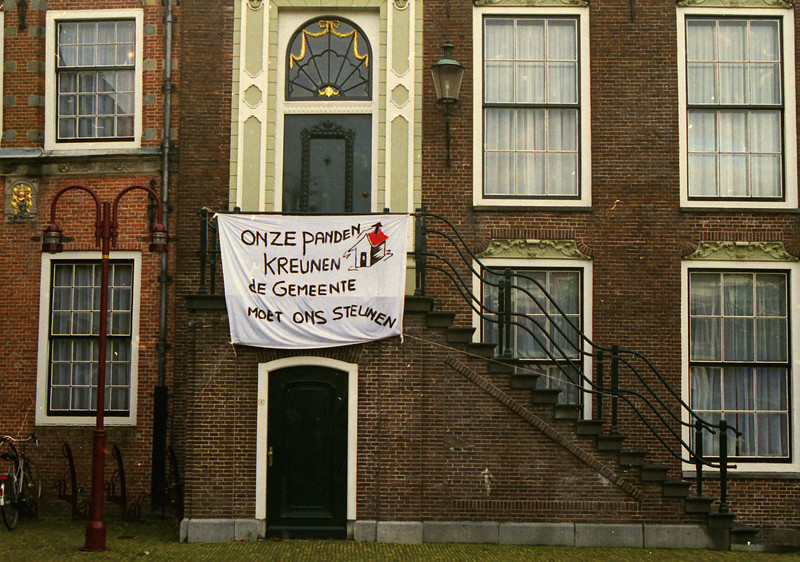 ONZE PANDEN
KREUNEN
de GEMEENTE
MOET ONS STEUNEN